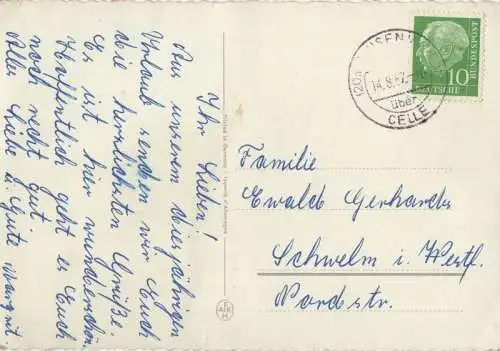 Ihr Lieben!
Aus unserem diesjährigen
Urlaub senden wir Euch
die herzlichsten Grüße.
Es ist hier wunderschön.
Hoffentlich geht es Euch
noch recht gut.
Alles Liebe u. Gute Margret.
(20a)
14.8.57
über
CELLE
10
DEUTSCHE
BUNDESPOST
Familie
Ewald Gerhards
Schwelm i. Westf.
Nordstr.